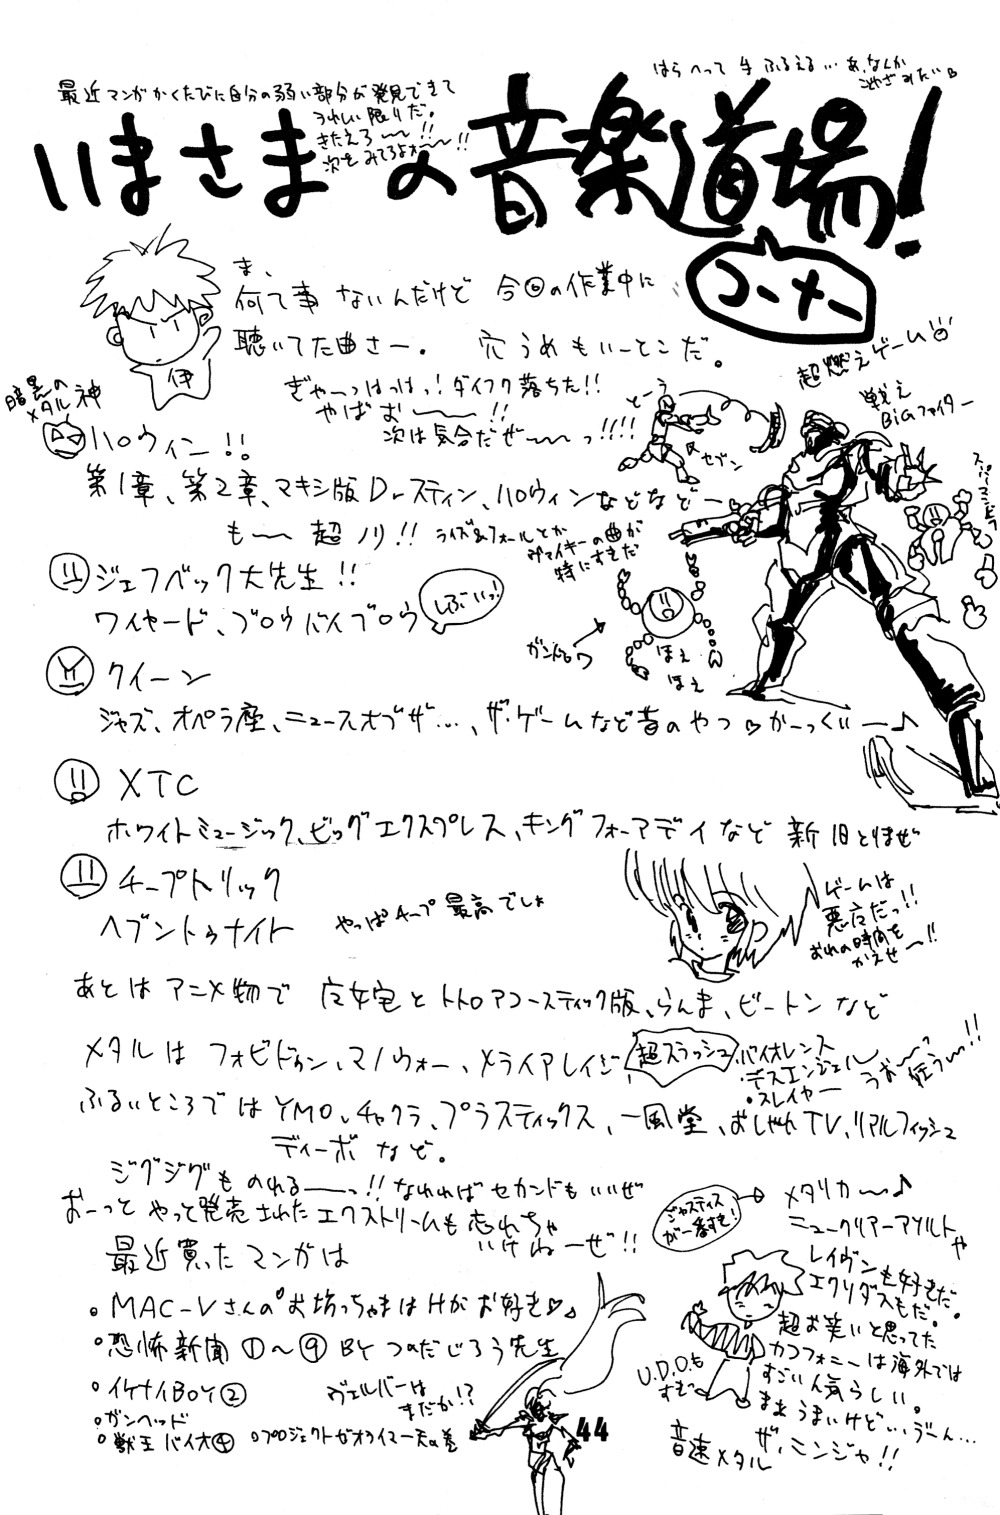 最近マンガかくたびに自分の弱い部分が発見できて
うれしい限りだ。
きたえろ〜〜!!
次をみてろよォ〜〜!!
はらへって手ふるえる…あ、なんか
いまさまの音楽道場!
コーナー
ま、
何て事ないんだけど 今回の作業中に
聴いてた曲さー。 穴うめもいーとこだ。
伊
ぎゃーっはっはっ!ダイフク落ちた!!
やばお〜〜!!
次は気合だぜ〜〜っ!!!!
超燃えゲーム
戦え
BiGファイター
セブン
スーパーマンセブン
暗黒の
メタル神
ハロウィン!!
第1章、第2章、マキシ版Dr.スティン、ハロウィンなどなどー
も〜〜超ノリ!! ライズ&フォールとか
ヴァイキーの曲が
特にすきだ
ジェフベック大先生!!
ワイヤード、ブロウバイブロウ
しぶいっ!
ガンドロワ
ほえ
ほえ
クイーン
ジャズ、オペラ座、ニュースオブザ…、ザ・ゲームなど昔のやつ♡かーっくいー♪
XTC
ホワイトミュージック、ビッグエクスプレス、キングフォーアデイなど新旧とりまぜ
チープトリック
ヘブントゥナイト
やっぱチープ最高でしょ
ゲームは
悪だっ!!
おれの時間を
かえせ〜!!
あとはアニメ物で 魔女宅とトトロアコースティック版、らんま、ビートンなど
メタルはフォビドゥン、マノウォー、メライアレイジ
超スラッシュ
・バイオレンス
・デスエンジェル
・スレイヤー
うお〜〜っ
狂う〜!!
ふるいところではYMO、チャクラ、プラスティックス、一風堂、おしゃれTV、リアルフィッシュ
ディーボなど。
ジグジグものれる〜〜っ!! なれればセカンドもいいぜ
おーっと やっと発売されたエクストリームも忘れちゃ
いけねーぜ!!
ジャスティス
が一番すき!
メタリカ〜♪
ニュークリアーアソルトや
レイヴンも好きだ。
エクリダスもだ。
超お笑いと思ってた
カコフォニーは海外では
すごい人気らしい。
まぁうまいけど…、うーん…
U.D.O.も
すむ
音速メタル
ザ・ニンジャ!!
最近買ったマンガは
・MAC-Vさんの"お坊っちゃまはHがお好き♡♪
・恐怖新聞①〜⑨ BY つのだじろう先生
・イケナイBOY②
・ガンヘッド
・獣王バイオ④ ・プロジェクトゼオライマー天の巻
ヴェルバーは
まだか!?
44